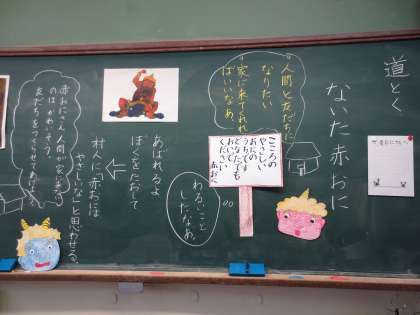 道とく
ないた赤おに
人間と友だちに
なりたい
家に来てくれれ
ばいいなあ。
こころの
やさしい
おにの
うちです
どなたでも
おいで
ください
赤おに
わるいこと
したなあ。
あばれるよ
ぼくをたおして
村人に「赤おは
やさしいな」と思わせる。
赤おにさん、人間が家に来ない
のは、かわいそう。
友だちをつくらせてあげよう。